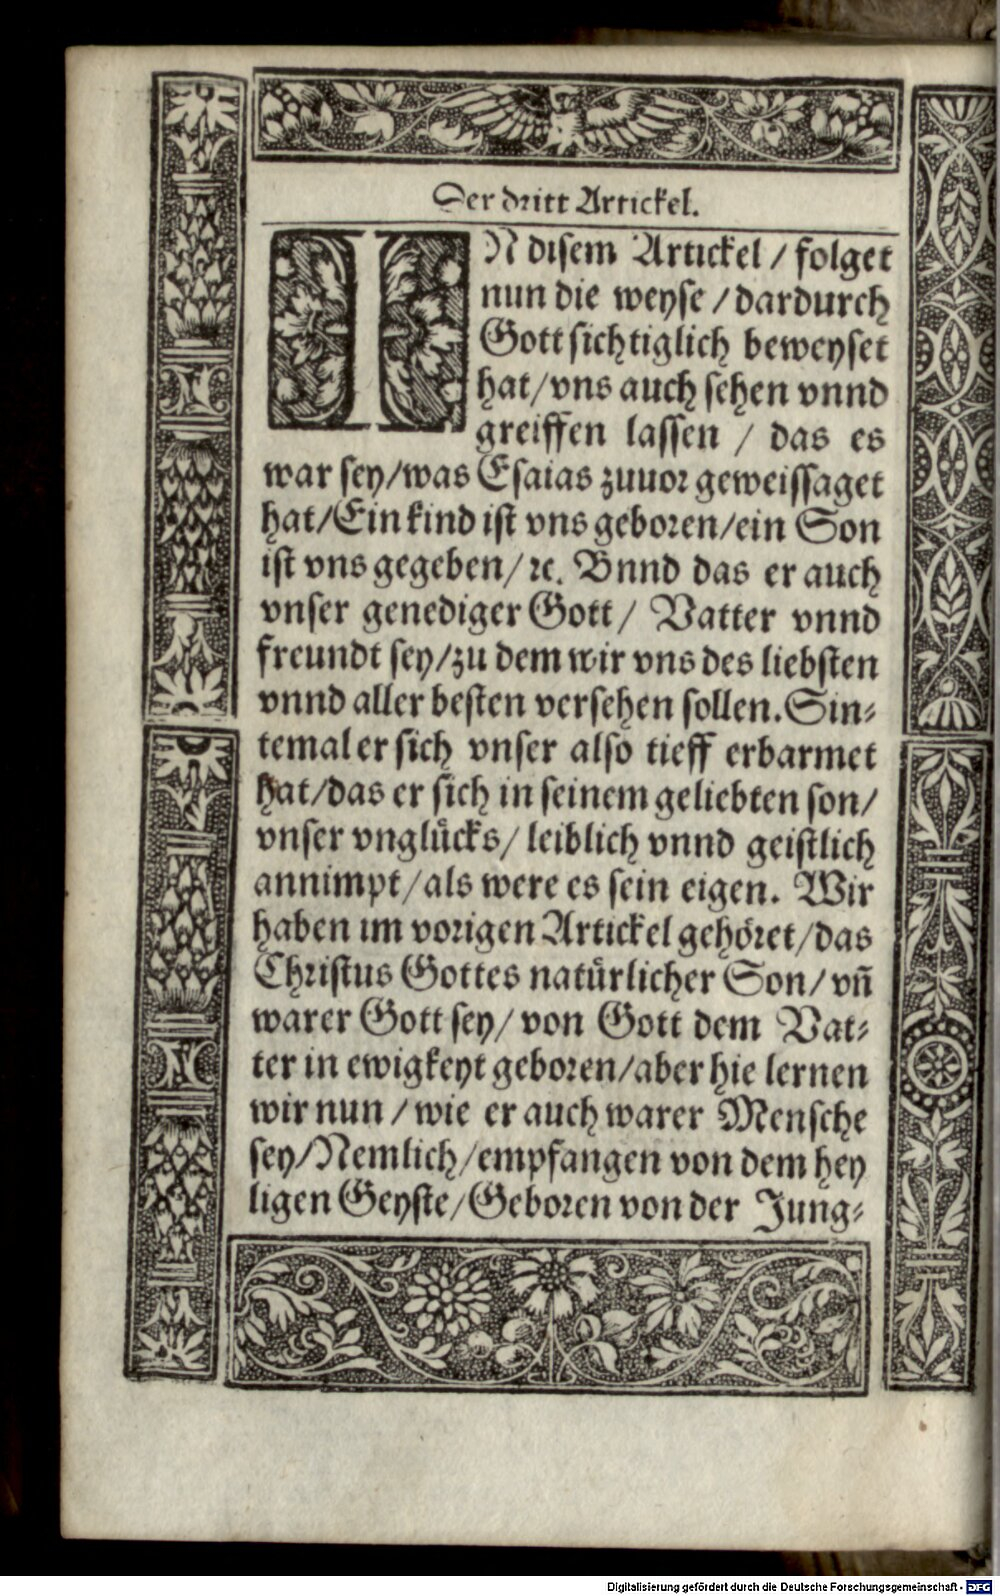 Der dritt Artickel.
IN disem Artickel / folget
nun die weyse / dardurch
Gott sichtiglich beweyset
hat/vns auch sehen vnnd
greiffen lassen / das es
war sey/was Esaias zuuor geweissaget
hat/Ein kind ist vns geboren/ein Son
ist vns gegeben/ ꝛc. Vnnd das er auch
vnser genediger Gott/ Vatter vnnd
freundt sey/zu dem wir vns des liebsten
vnnd aller besten versehen sollen. Sin⸗
temal er sich vnser also tieff erbarmet
hat/das er sich in seinem geliebten son/
vnser vnglůcks/ leiblich vnnd geistlich
annimpt/als were es sein eigen. Wir
haben im vorigen Artickel gehöret/das
Christus Gottes natürlicher Son/ vñ
warer Gott sey/ von Gott dem Vat⸗
ter in ewigkeyt geboren/aber hie lernen
wir nun / wie er auch warer Mensche
sey/Nemlich/empfangen von dem hey
ligen Geyste/Geboren von der Jung⸗
Digitalisierung gefördert durch die Deutsche Forschungsgemeinschaft - DFG